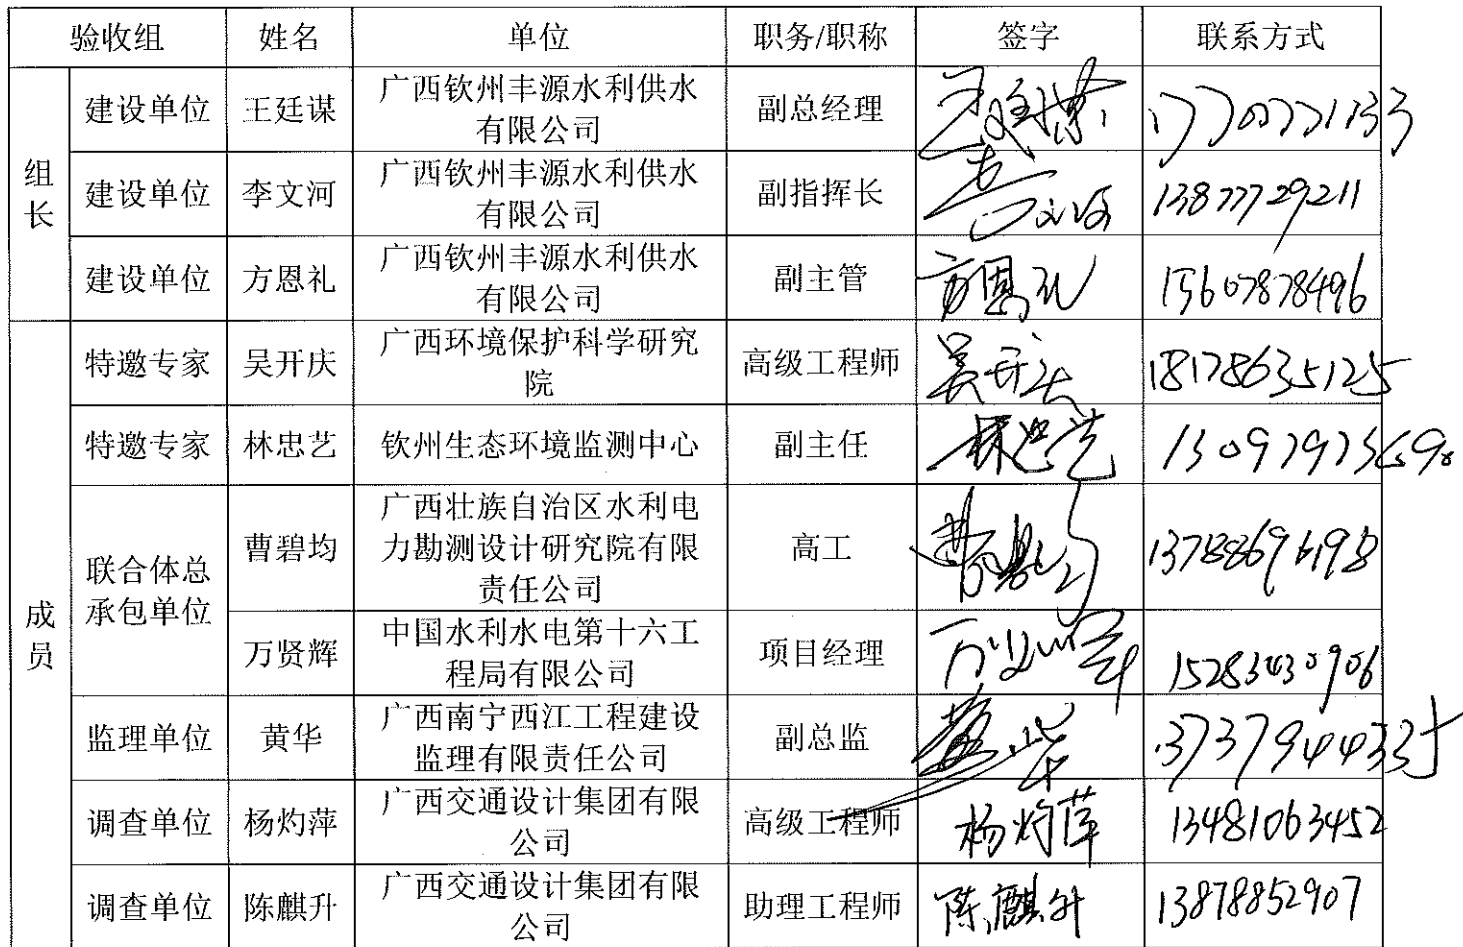 验收组 姓名 单位 职务/职称 签字 联系方式
组长
建设单位 王廷谋 广西钦州丰源水利供水有限公司 副总经理 王廷谋 17707771133
建设单位 李文河 广西钦州丰源水利供水有限公司 副指挥长 李文河 13877729211
建设单位 方恩礼 广西钦州丰源水利供水有限公司 副主管 方恩礼 15607878496
成员
特邀专家 吴开庆 广西环境保护科学研究院 高级工程师 吴开庆 18178635125
特邀专家 林忠艺 钦州生态环境监测中心 副主任 林忠艺
联合体总承包单位 曹碧均 广西壮族自治区水利电力勘测设计研究院有限责任公司 高工 曹碧均 13788696198
万贤辉 中国水利水电第十六工程局有限公司 项目经理 万贤辉
监理单位 黄华 广西南宁西江工程建设监理有限责任公司 副总监 黄华
调查单位 杨灼萍 广西交通设计集团有限公司 高级工程师 杨灼萍 13481063452
调查单位 陈麒升 广西交通设计集团有限公司 助理工程师 陈麒升 13878852907